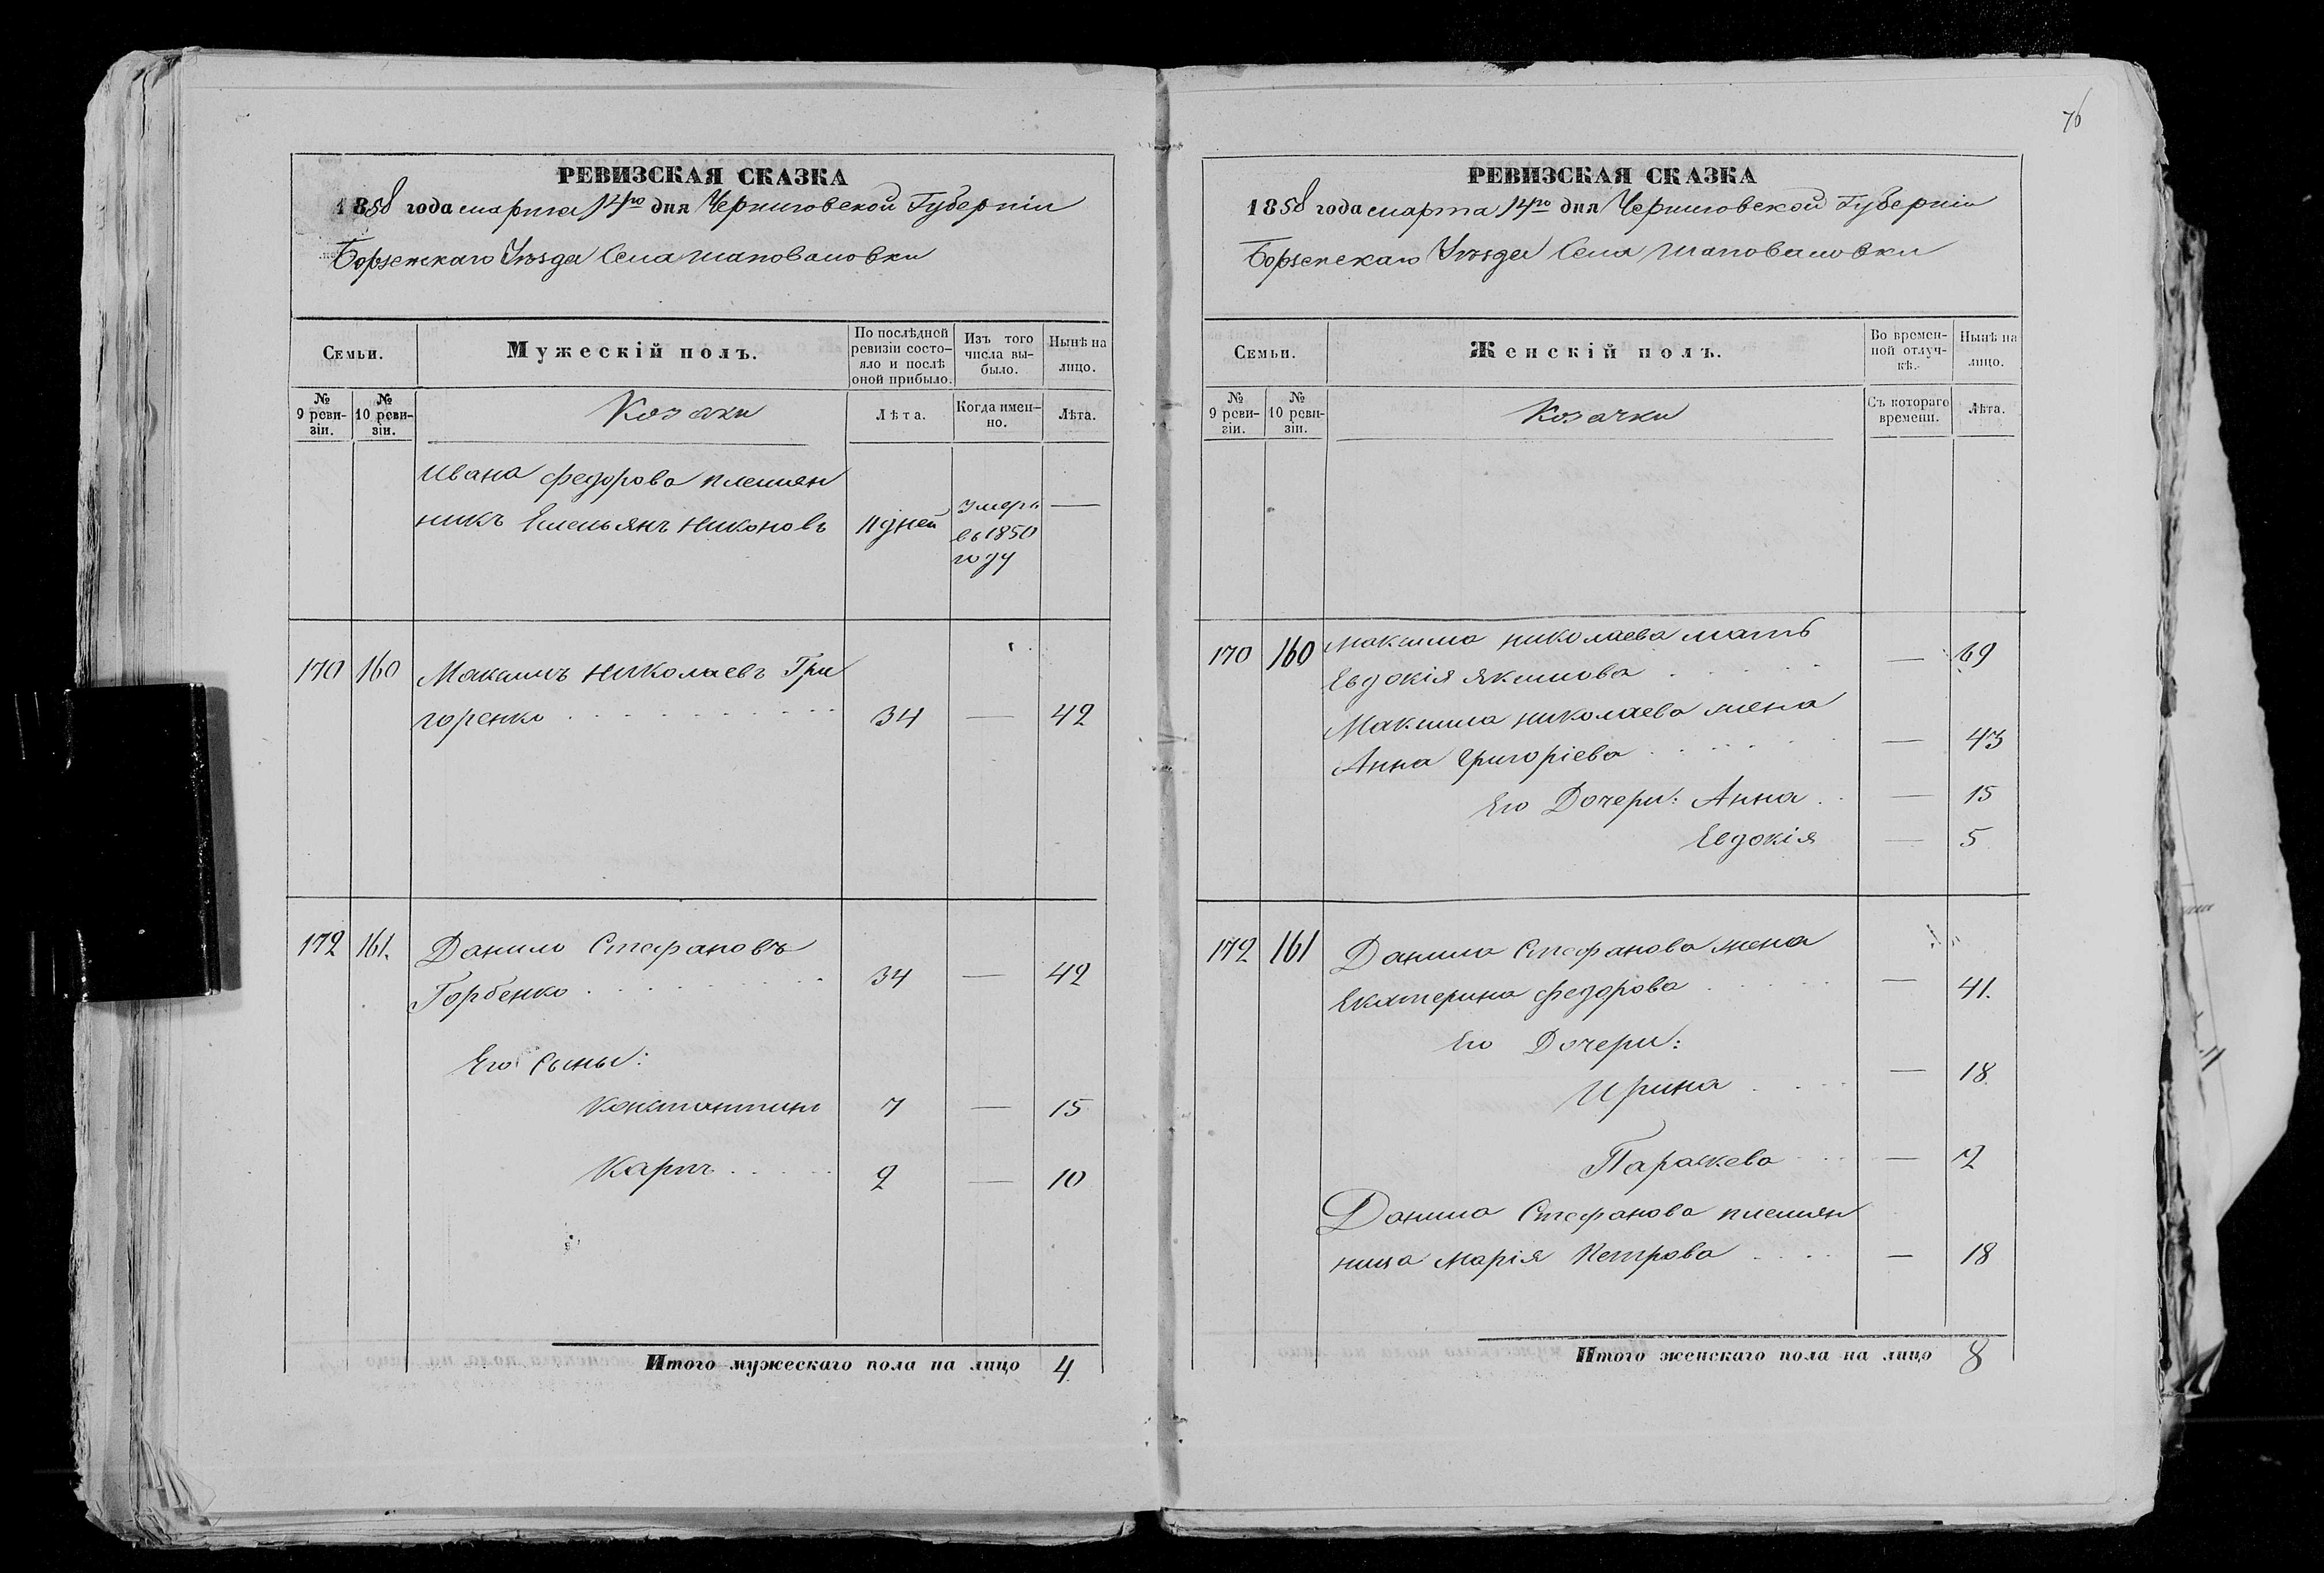 РЕВИЗСКАЯ СКАЗКА
1858 года марта 14го дня Черниговской Губерніи
Борзенскаго Уѣзда Села Шаповаловки
Семьи.
Мужескій полъ.
По послѣдней ревизіи состо-
яло и послѣ
оной прибыло.
Изъ того
числа вы-
было.
Нынѣ на
лицо.
№
9 реви-
зіи.
№
10 реви-
зіи.
Козаки
Лѣта.
Когда имен-
но.
Лѣта.
Ивана Федорова племян
никъ Емельянъ Никоновъ 11 дней Умеръ въ 1850 году —
170 160 Максимъ Николаевъ Гри
горенко 34 — 42
172 161. Данило Стефановъ
Горбенко 34 — 42
Его Сыны:
Константинъ 7 — 15
Карпъ 2 — 10
Итого мужескаго пола на лицо 4
76
РЕВИЗСКАЯ СКАЗКА
1858 года марта 14го дня Черниговской Губерніи
Борзенскаго Уѣзда Села Шаповаловки
Семьи.
Женскій полъ.
Во времен-
ной отлуч-
кѣ.
Нынѣ на
лицо.
№
9 реви-
зіи.
№
10 реви-
зіи.
Козачки
Съ котораго
времени.
Лѣта.
170 160 Максима Николаева мать
Евдокія Якимова — 69
Максима Николаева жена
Анна Григоріева — 43
Его Дочери: Анна — 15
Евдокія — 5
172 161 Данила Стефанова жена
Екатерина Федорова — 41.
Его Дочери:
Ирина — 18
Параскева —
Данила Стефанова племян
ница Марія Петрова — 18
Итого женскаго пола на лицо 8